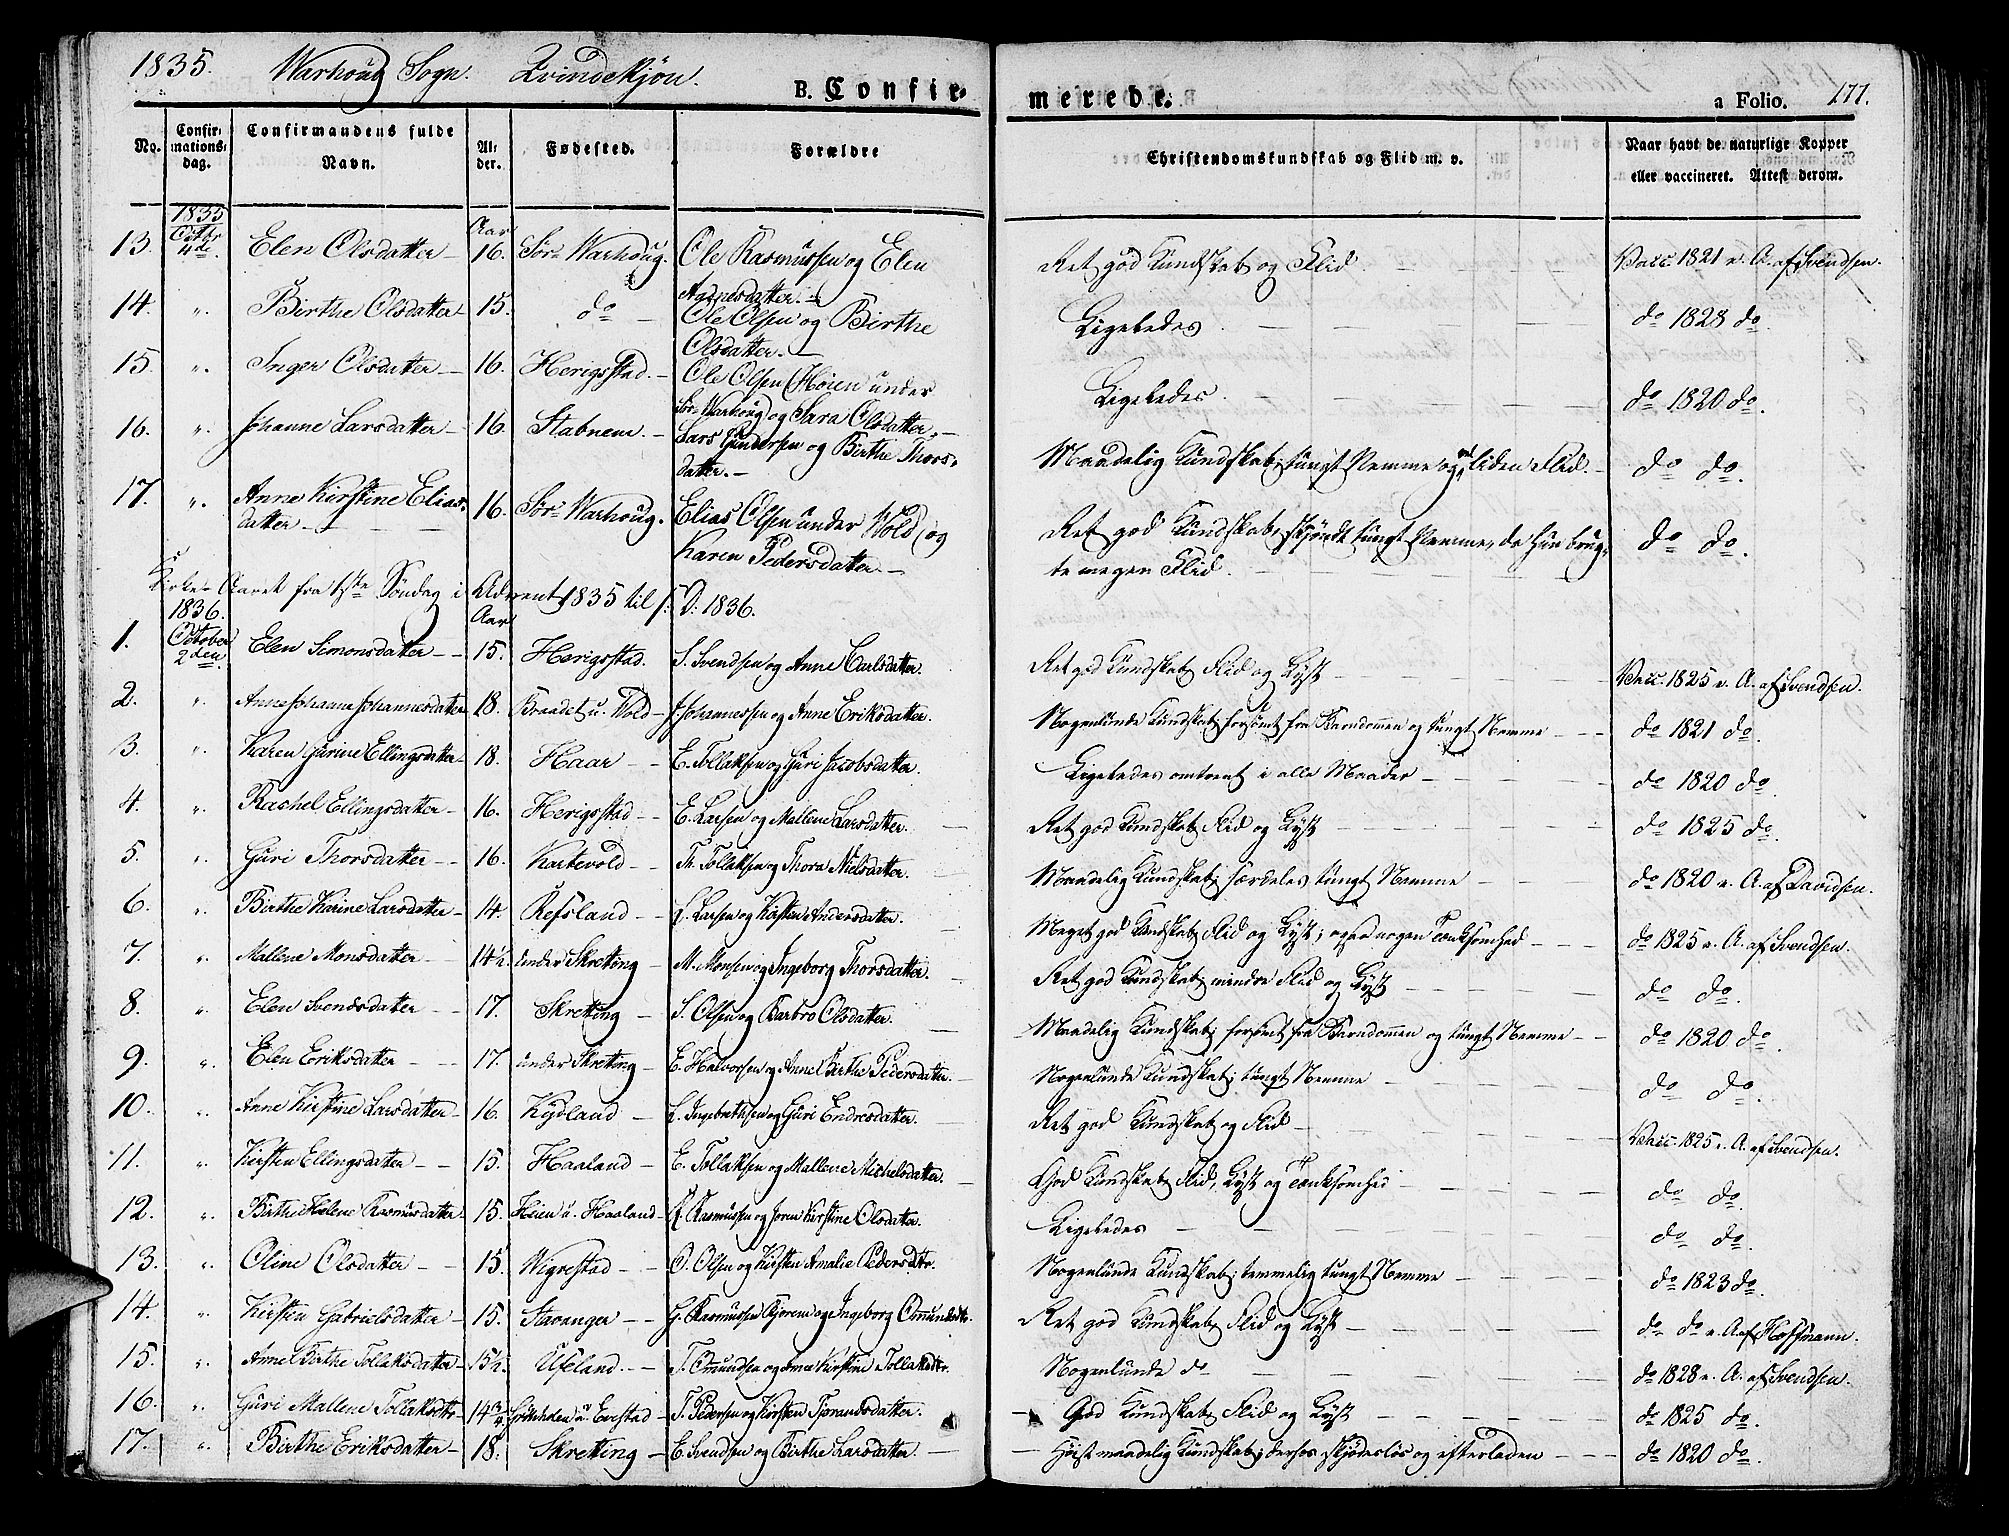 1835. Warhoug Sogn. Qvindekjön.
B. Confir-
merede.
a Folio. 177.
No.
Confir-
mations-
dag.
Confirmandens fulde
Navn.
Al-
der.
Fødested.
Forældre
Christendomskundskab og Flid m. v.
Naar havt de naturlige Kopper
eller vaccineret. Attest derom.
1835
Octbr
4de.
Aar
13. Elen Olsdatter 16. Sör Warhoug. Ole Rasmussen og Elen
Ret god Kundskab og Flid. Vacc. 1821 v. A. af Svendsen.
14. " Birthe Olsdatter 15. do Ole Olsen og Birthe
Olsdatter.
Ligeledes do 1828 do.
15. " Inger Olsdatter 16. Herigsstad. Ole Olsen Høien under
Sör Warhoug og Sara Olsdatter.
Ligeledes. do 1820 do.
16. " Johanne Larsdatter 16. Stabnem. Lars Gundersen og Birthe Thors-
datter.
Maadelig Kundskab; tungt Nemme og liden Flid. do do.
17. " Anne Kirstine Elias-
datter 16. Sör Warhoug. Elias Olsen under Wold og
Karen Pedersdatter
Ret god Kundskab, skjöndt tungt Nemme, da hun brug-
te megen Flid. do do.
Kirke-Aaret fra 1ste Söndag i Advent 1835 til s: D: 1836.
1836. Aar
October
2den.
1. Elen Simonsdatter 15. Herigsstad. S. Svendsen og Anne Carlsdatter.
Ret god Kundskab Flid og Lyst Vacc. 1825 v. A. af Svendsen.
2. " Anne Johanne Johannesdatter 18. Braadet u. Wold J. Johannessen og Anne Eriksdatter.
Nogenlunde Kundskab; forsömt fra Barndommen og tungt Nemme do 1821 do.
3. " Karen Gurine Ellingsdatter 18. Haar E. Tollaksen og Guri Jacobsdatter.
Ligeledes omtrent i alle Maader do 1820 do.
4. " Rachel Ellingsdatter 16. Herigsstad E. Larsen og Mallene Larsdatter.
Ret god Kundskab Flid og Lyst do 1825 do.
5. " Guri Thorsdatter 16. Kartevold Th. Tollaksen og Thora Nielsdatter.
Maadelig Kundskab; særdeles tungt Nemme do 1820 v. A. af Davidsen.
6. " Birthe Karine Larsdatter 14. Refsland L. Larsen og Kirsten Andersdatter.
Meget god Kundskab Flid og Lyst; ogsaa nogen Tænksomhed do 1825 v. A. af Svendsen.
7. " Mallene Monsdatter 14½. under Skretting M. Monsen og Ingeborg Thorsdatter.
Ret god Kundskab; mindre Flid og Lyst do do.
8. " Elen Svendsdatter 17. Skretting S. Olsen og Barbro Olsdatter.
Maadelig Kundskab; forsömt fra Barndommen og tungt Nemme do 1820 do.
9. " Elen Eriksdatter 17. under Skretting E. Halvorsen og Anne Birthe Pedersdatter.
Nogenlunde Kundskab; tungt Nemme do do.
10. " Anne Kirstine Larsdatter 16. Kydland L. Ingebretsen og Guri Endresdatter.
Ret god Kundskab og Flid Vacc. 1825 v. A. af Svendsen.
11. " Kirsten Ellingsdatter 15. Haaland E. Tollaksen og Mallene Michelsdatter.
God Kundskab Flid, Lyst og Tænksomhed do do.
12. " Birthe Helene Rasmusdatter 15. Heien u. Haaland R. Rasmussen og Joren Kirstine Olsdatter.
Ligeledes do do.
13. " Oline Olsdatter 15. Wigrestad O. Olsen og Kirsten Amalie Pedersdtr.
Nogenlunde Kundskab; temmelig tungt Nemme do 1823 do.
14. " Kirsten Gabrielsdatter 15. Stavanger G. Rasmussen og Ingeborg Omundsdtr.
Ret god Kundskab Flid og Lyst do do v. A. af Hoffmann.
15. " Anne Birthe Tollaksdatter 15½. Ueland. T. Omundsen og Anne Kirstine Tollaksdtr.
Nogenlunde do do 1828 v. A. af Svendsen.
16. " Guri Mallene Tollaksdtr 14¾ u Evestad T. Pedersen og Kirsten Tjorandsdatter.
God Kundskab Flid og Lyst do 1825 do.
17. " Birthe Eriksdatter 18. Skretting E. Svendsen og Birthe Larsdatter.
Höist maadelig Kundskab; dertil skjödeslös og efterladen do 1820 do.